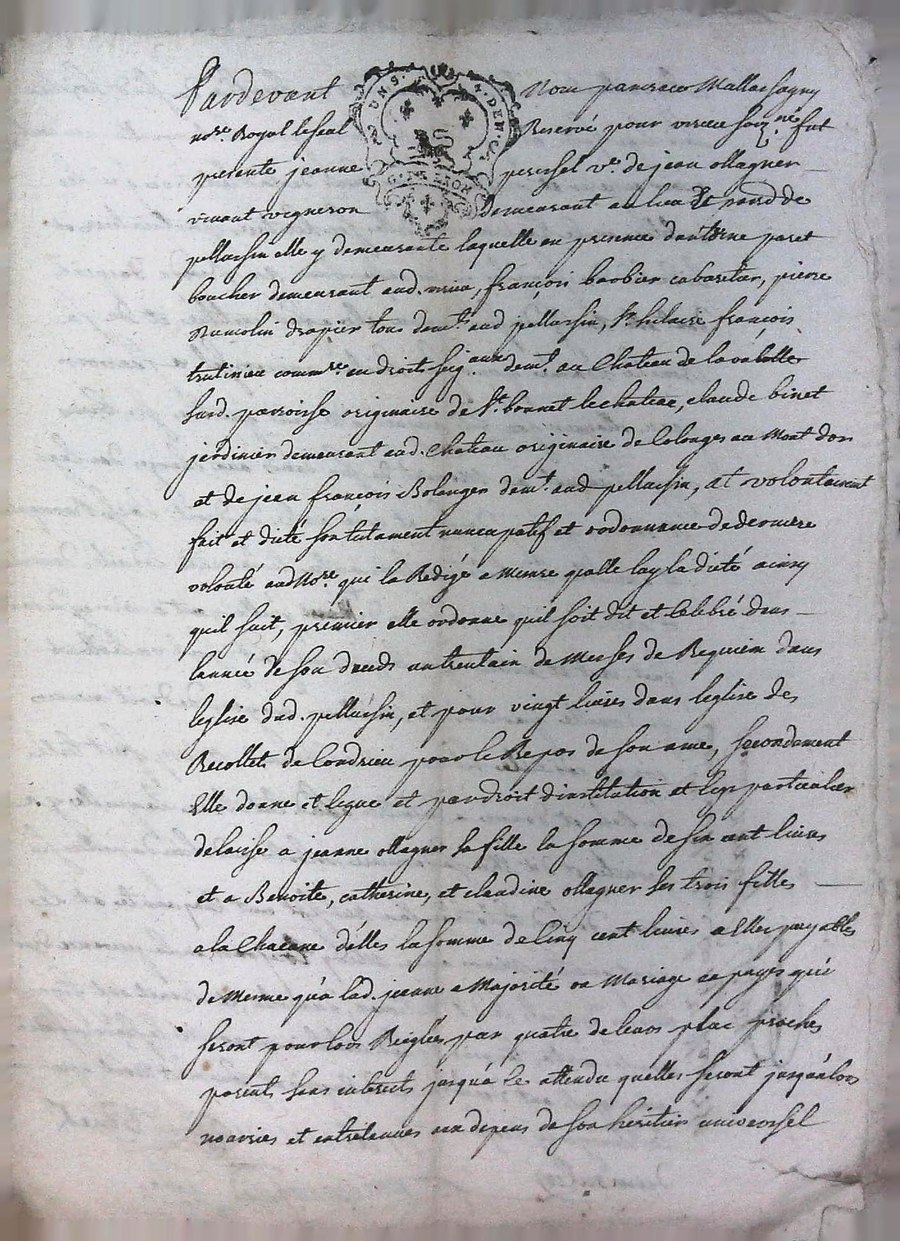 Pardevant Nous pancrace Mallassagny
nore Royal le seal Reservé pour virieu souzné fut
presente jeanne perissel ve de jean ollagner
vivant vigneron demeurant au lieu et nord de
pellussin elle y demeurante laquelle en presence dantoine paret
boucher demeurant aud. virieu, françois barbier cabaretier, pierre
Dumolin drapier tous demt. aud pellussin, st. hilaire françois
commre. en droits seigaux demt. au Chateau de la valette
surd. parroisse originaire de st. bonnet le chateau, claude binet
jardinier demeurant aud. Chateau originaire de Colonges au Mont dor
et de jean françois Bolanger demt. aud pellussin, at volontairement
fait et dicté son testament nuncupatif et ordonnance de derniere
volonté aud Nore. qui la Redigé a Mesure quelle luy la dicté ainsy
quil suit, premier elle ordonne quil soit dit et Celebré dans
lannée de son deceds un trentain de Messes de Requiem dans
leglise dud. pellussin, et pour vingt livres dans leglise des
Recollets de Condrieu pour le Repos de son ame, secondement
Elle donne et legue et par droit dinstitution et legs particulier
delaisse a jeanne ollagner sa fille la somme de six cent livres
et a Benoite, catherine, et claudine ollagner ses trois filles
a la Chacune d'elles la somme de Cinq cent livres a Elles payables
de Meme qu'a lad. jeanne a Majorité ou Mariage aux payes qui
seront pour lors Reiglées par quatre de leurs plus proches
parents sans interets jusqu'a ce attendu quelles seront jusqu'alors
nourries et entretenues aux depens de son heritier universel
UNS. 4. DEN.
G. DE LYON